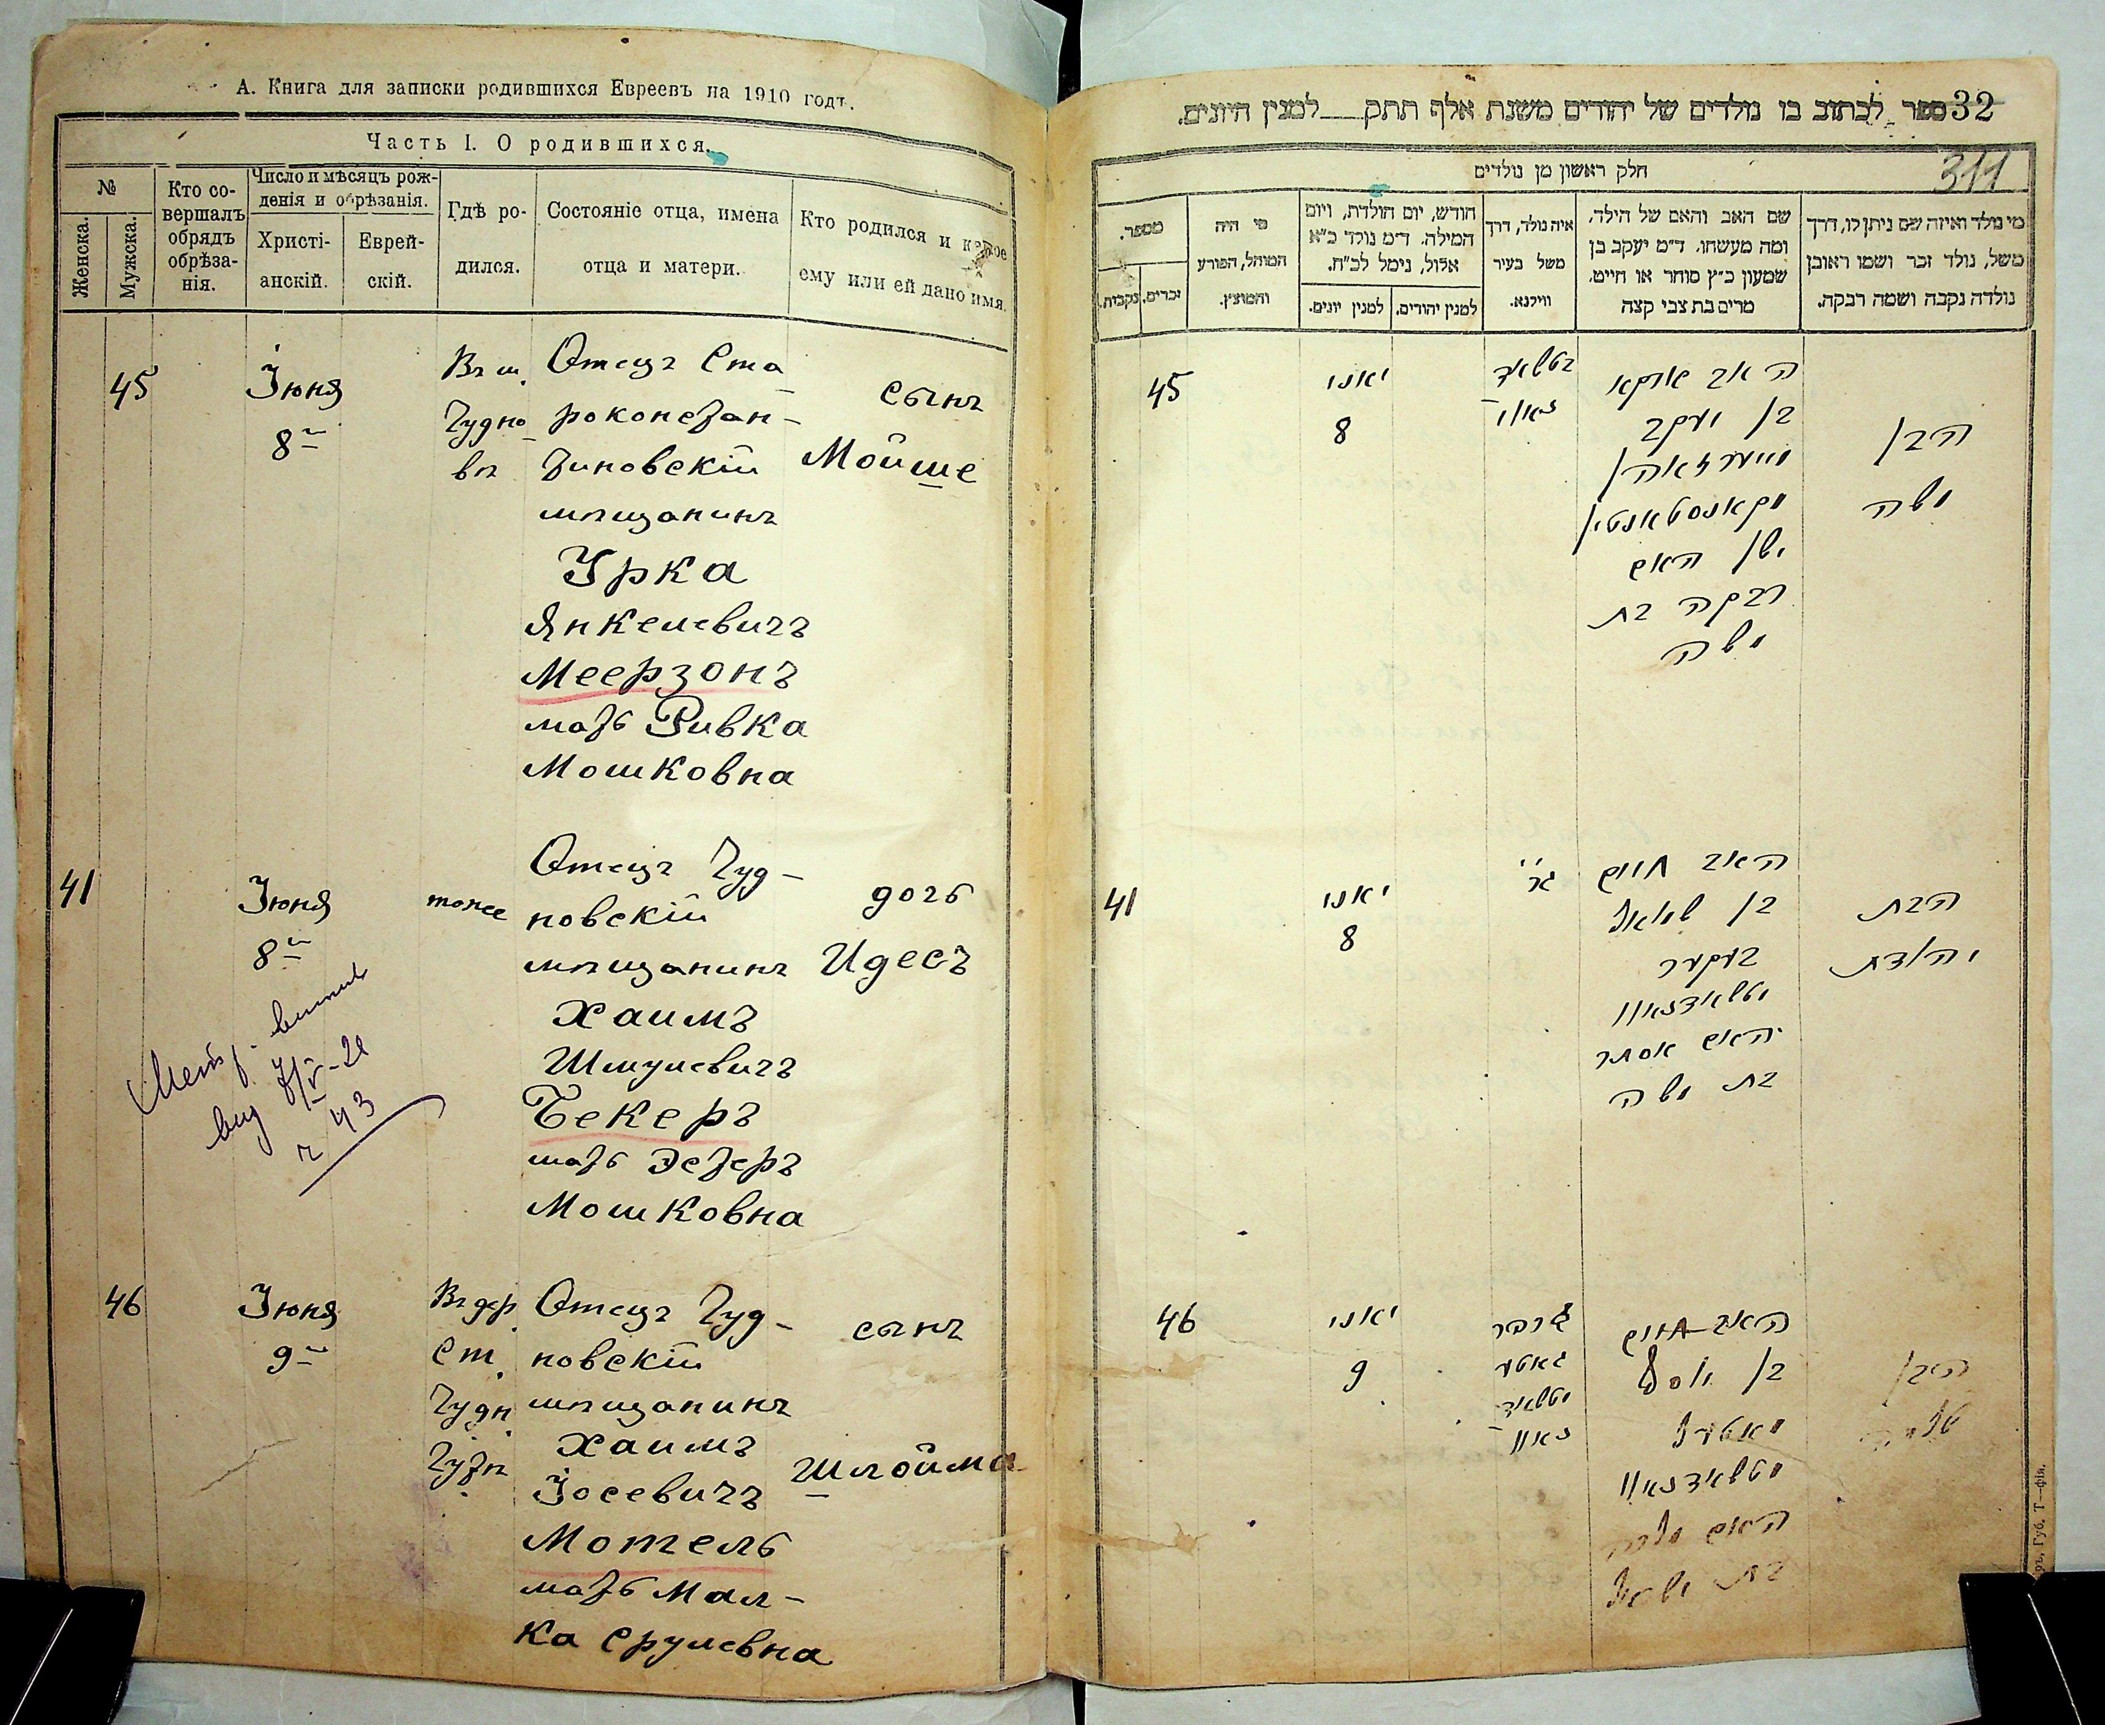 А. Книга для записки родившихся Евреевъ на 1910 годъ.
Часть I. О родившихся.
№
Женска.
Мужска.
Кто со-
вершалъ
обрядъ
обрѣза-
нія.
Число и мѣсяцъ рож-
денія и обрѣзанія.
Христі-
анскій.
Еврей-
скій.
Гдѣ ро-
дился.
Состояніе отца, имена
отца и матери.
Кто родился и какое
ему или ей дано имя.
45
Іюня
8
Въ м.
Чудно
вѣ
Отецъ Ста
роконстан-
тиновскій
мѣщанинъ
Урка
Янкелевичъ
Меерзонъ
мать Ривка
Мошковна
сынъ
Мойше
41
Іюня
8
тоже
Отецъ Чуд-
новскій
мѣщанинъ
Хаимъ
Шмулевичъ
Бекеръ
мать Эстеръ
Мошковна
дочь
Идесъ
43
46
Іюня
9
Въ дер.
Ст.
Чудн.
Отецъ Чуд-
новскій
мѣщанинъ
Хаимъ
Іосевичъ
Мотель
мать Мал-
ка Срулевна
сынъ
Шлойма
32 ספר לכתוב בו נולדים של יהודים משנת אלף תתק למנין היונים.
311
חלק ראשון מן נולדים
מספר.
זכרים.
נקבות.
מי היה
המוהל, הפורע
והמוצץ.
חודש, יום הולדת, ויום
המילה. ד״מ נולד כ״א
אלול, נימל לכ״ח.
למנין יונים.
למנין יהודים.
איה נולד, דרך
משל בעיר
ווילנא.
שם האב והאם של הילד,
ומה מעשהו. ד״מ יעקב בן
שמעון כ״ץ סוחר או חייט.
מרים בת צבי קצה
מי נולד ואיזה שם ניתן לו, דרך
משל, נולד זכר ושמו ראובן
נולדה נקבה ושמה רבקה.
45
יאני
8
האב אורקא
בן יעקב
מייערזאהן
האם
רבקה בת
משה
הבן
משה
41
יאני
8
האב חיים
בן שמואל
בעקער
האם אסתר
בת משה
הבת
יהודת
46
יאני
9
האב חיים
בן יוסף
מאטעל
האם מלכה
בת ישראל
הבן
שלמה